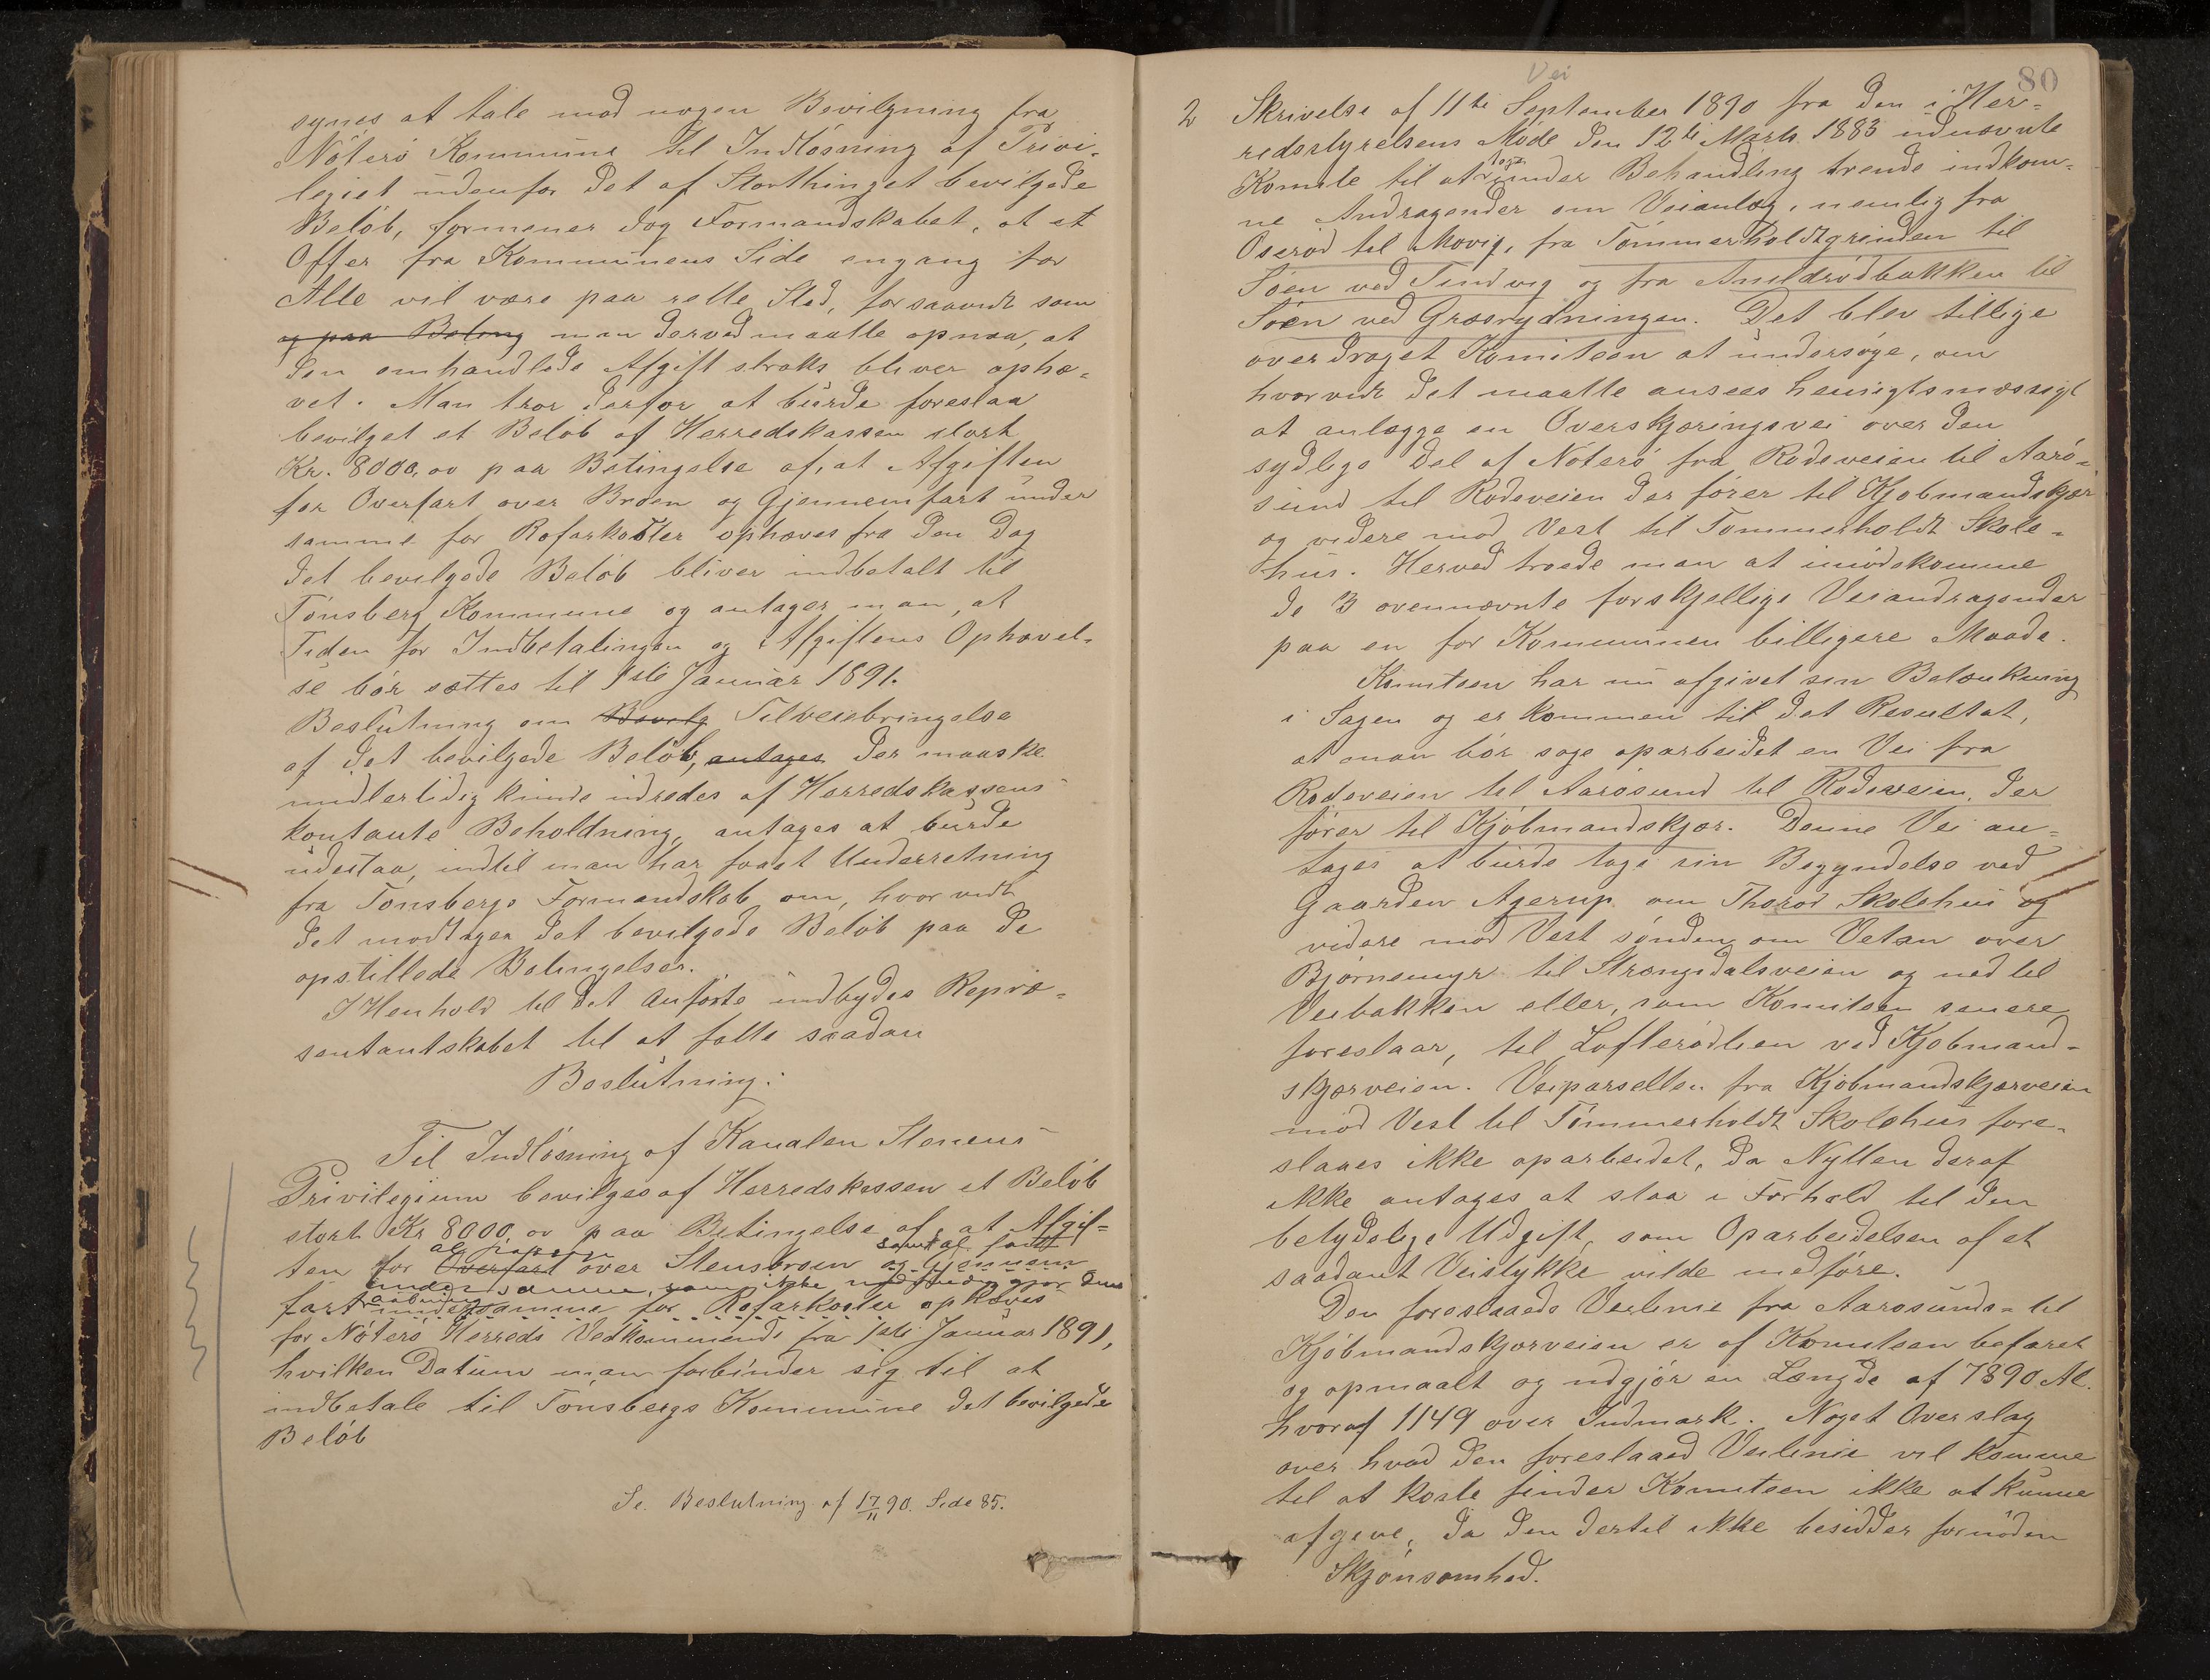 synes at tale mod nogen Bevilgning fra
Nøterø Kommune til Indløsning af Privi-
legiet udenfor det af Storthinget bevilgede
Beløb, formener dog Formandskabet, at et
Offer fra Kommunens Side engang for
Alle vil være paa rette Sted, forsaavidt som
og paa Beting man derved maatte opnaa, at
den omhandlede Afgift straks bliver ophæ-
vet. Man tror derfor at burde foreslaa
bevilget et Beløb af Herredskassen stort
Kr. 8000,00 paa Betingelse af, at Afgiften
for Overfart over Broen og Gjennemfart under
samme for Rofarkoster ophæves fra den Dag
det bevilgede Beløb bliver indbetalt til
Tønsberg Kommune og antager man, at
Tiden for Indbetalingen og Afgiftens Ophævel-
se bør sættes til 1ste Januar 1891.
Beslutning om Bevilg Tilveiebringelse
af det bevilgede Beløb, antages der maaske
midlertidig kunde udredes af Herredskassens
kontante Beholdning, antages at burde
udestaa, indtil man har faaet Underretning
fra Tønsbergs Formandskab om, hvorvidt
det modtager det bevilgede Beløb paa de
opstillede Betingelser.
I Henhold til det Anførte indbydes Repræ-
sentantskabet til at fatte saadan
Beslutning:
Til Indløsning af Kanalen Stenens
Privilegium bevilges af Herredskassen et Beløb
stort Kr 8000,00 paa Betingelse af, at Afgif-
ten for Overfart over Stensbroen og Gjennem
fart under samme for Rofarkoster ophæves
for Nøterø Herreds Vedkommende fra 1ste Januar 1891,
hvilken Datum man forbinder sig til at
indbetale til Tønsbergs Kommune det bevilgede
Beløb
Se Beslutning af 17/11 90. Side 85.
Vei
80
2 Skrivelse af 11te September 1890 fra den i Her-
redsstyrelsens Møde den 12te Marts 1883 udnævnte
Komite til at tage under Behandling trende indkom-
ne Andragender om Veianlæg, nemlig fra
Oserød til Movig, fra Tømmerholdtgrinden til
Søen ved Sundvig og fra Arildsrødbakken til
Søen ved Græsrydningen. Det blev tillige
overdraget Komiteen at undersøge, om
hvorvidt det maatte ansees hensigtsmæssigt
at anlægge en Overskjæringsvei over den
sydlige Del af Nøterø fra Rodeveien til Aarø-
sund til Rodeveien der fører til Kjøbmandskjær
og videre mod Vest til Tømmerholdt Skole-
hus. Herved troede man at imødekomme
de 3 ovennævnte forskjellige Veiandragender
paa en for Kommunen billigere Maade.
Komiteen har nu afgivet sin Betænkning
i Sagen og er kommen til det Resultat,
at man bør søge oparbeidet en Vei fra
Rodeveien til Aarøsund til Rodeveien, der
fører til Kjøbmandskjær. Denne Vei an-
tages at burde tage sin Begyndelse ved
Gaarden Agerup om Thorød Skolehus og
videre mod Vest sønden om Vetan over
Bjørnemyr til Strengsdalsveien og ned til
Veibakken eller, som Komiteen senere
foreslaar, til Lofterødlien ved Kjøbmand-
skjærveien. Veiparsellen fra Kjøbmandskjærveien
mod Vest til Tømmerholdt Skolehus fore-
slaaes ikke oparbeidet, da Nytten deraf
ikke antages at staa i Forhold til den
betydelige Udgift, som Oparbeidelsen af et
saadant Veistykke vilde medføre.
Den foreslaaede Veilinie fra Aarøsunds- til
Kjøbmandskjærveien er af Komiteen befaret
og opmaalt og udgjør en Længde af 7890 Al.
hvoraf 1149 over Indmark. Noget Overslag
over hvad den foreslaaed Veilinie vil komme
til at koste finder Komiteen ikke at kunne
afgive, da den dertil ikke besidder fornøden
Skjønsomhed.